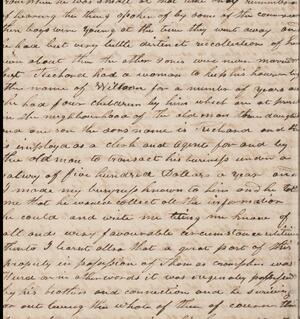 of hearing the thing spoken of by some of the
then boys very young at the time they went away an
is had but very little distinct recollection of
own about them the other sons were never married
but Richard had a woman to keep his house by
the name of Willson for a number of years an
he had four children by him which are at
in the neighbourhood of the old man three daught
and one son the sons name is Richard and
is employed as a clerk and agent for and by
the old man to transact his business under a
salery of five hundred Dollars a year and
I made my buisness known to him and he tol
me that he would collect all the information
he could and write me thing he knows of
all and very favourable circumstance
thinto I learnt allso that a great part of the
property in possession of Thomas
or in other words it was originaly possessed
by his brothers and connection and he surviving
or out living the whole of them of course the